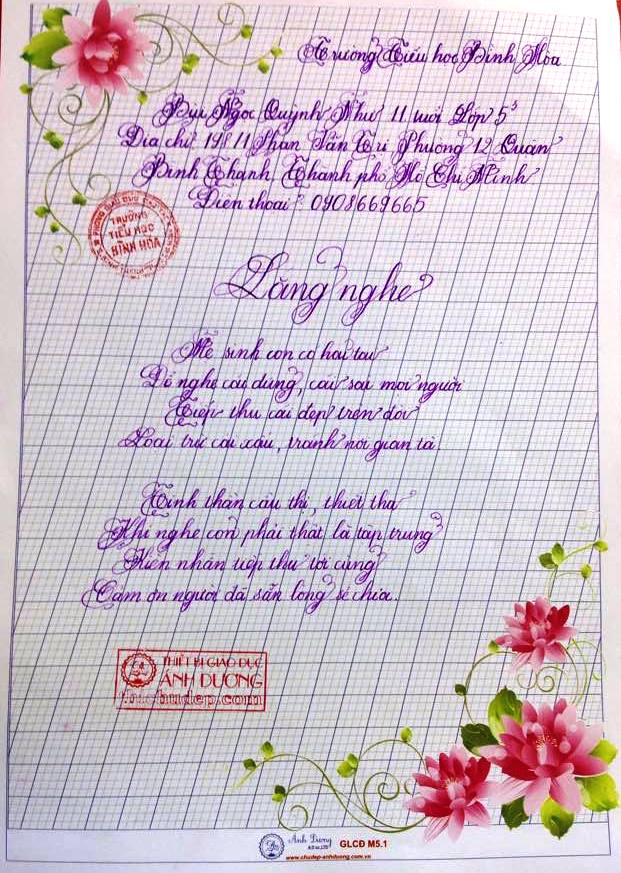 Trường Tiểu học Bình Hòa
Bùi Ngọc Quỳnh Như 11 tuổi Lớp 5³
Địa chỉ 198/11 Phan Văn Trị Phường 12 Quận
Bình Thạnh Thành phố Hồ Chí Minh
Điện thoại: 0908669665
TRƯỜNG
TIỂU HỌC
BÌNH HÒA
Lắng nghe
Mẹ sinh con có hai tai
Để nghe cái đúng, cái sai mọi người
Tiếp thu cái đẹp trên đời
Loại trừ cái xấu, tránh nơi gian tà.
Tinh thần cầu thị, thiết tha
Khi nghe con phải thật là tập trung
Kiên nhẫn tiếp thu tới cùng
Cảm ơn người đã sẵn lòng sẻ chia.
THIẾT BỊ GIÁO DỤC
ÁNH DƯƠNG
Ánh Dương
GLCĐ M5.1
www.chudep-anhduong.com.vn